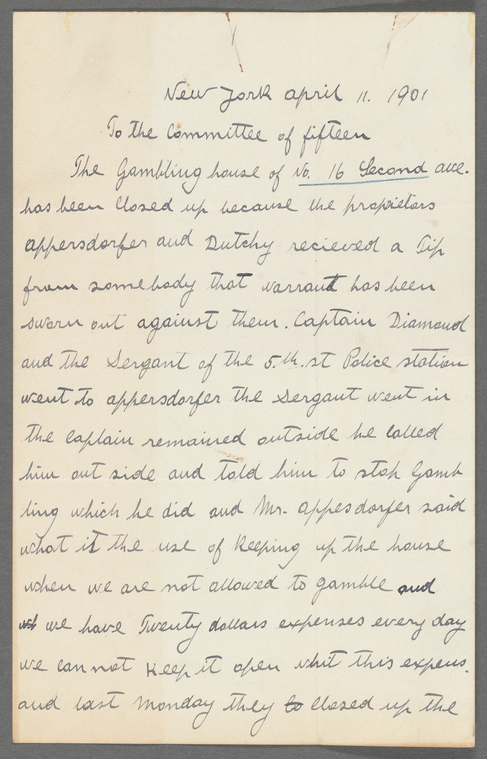 New York april 11. 1901
To the Committee of fifteen
The Gambling house of No. 16 Second ave.
has been Closed up because the propieters
appersdorfer and Dutchy recieved a Tip
from somebody that warrant has been
sworn out against them. Captain Diamond
and the Sergant of the 5.th. st Police station
went to appersdorfer the Sergant went in
the Captain remained outside he called
him out side and told him to stop Gamb
ling which he did and Mr. appesdorfer said
what is the use of Keeping up the house
when we are not allowed to gamble and
we have Twenty dollars expenses every day
we can not Keep it open whit this expens.
and last Monday they closed up the